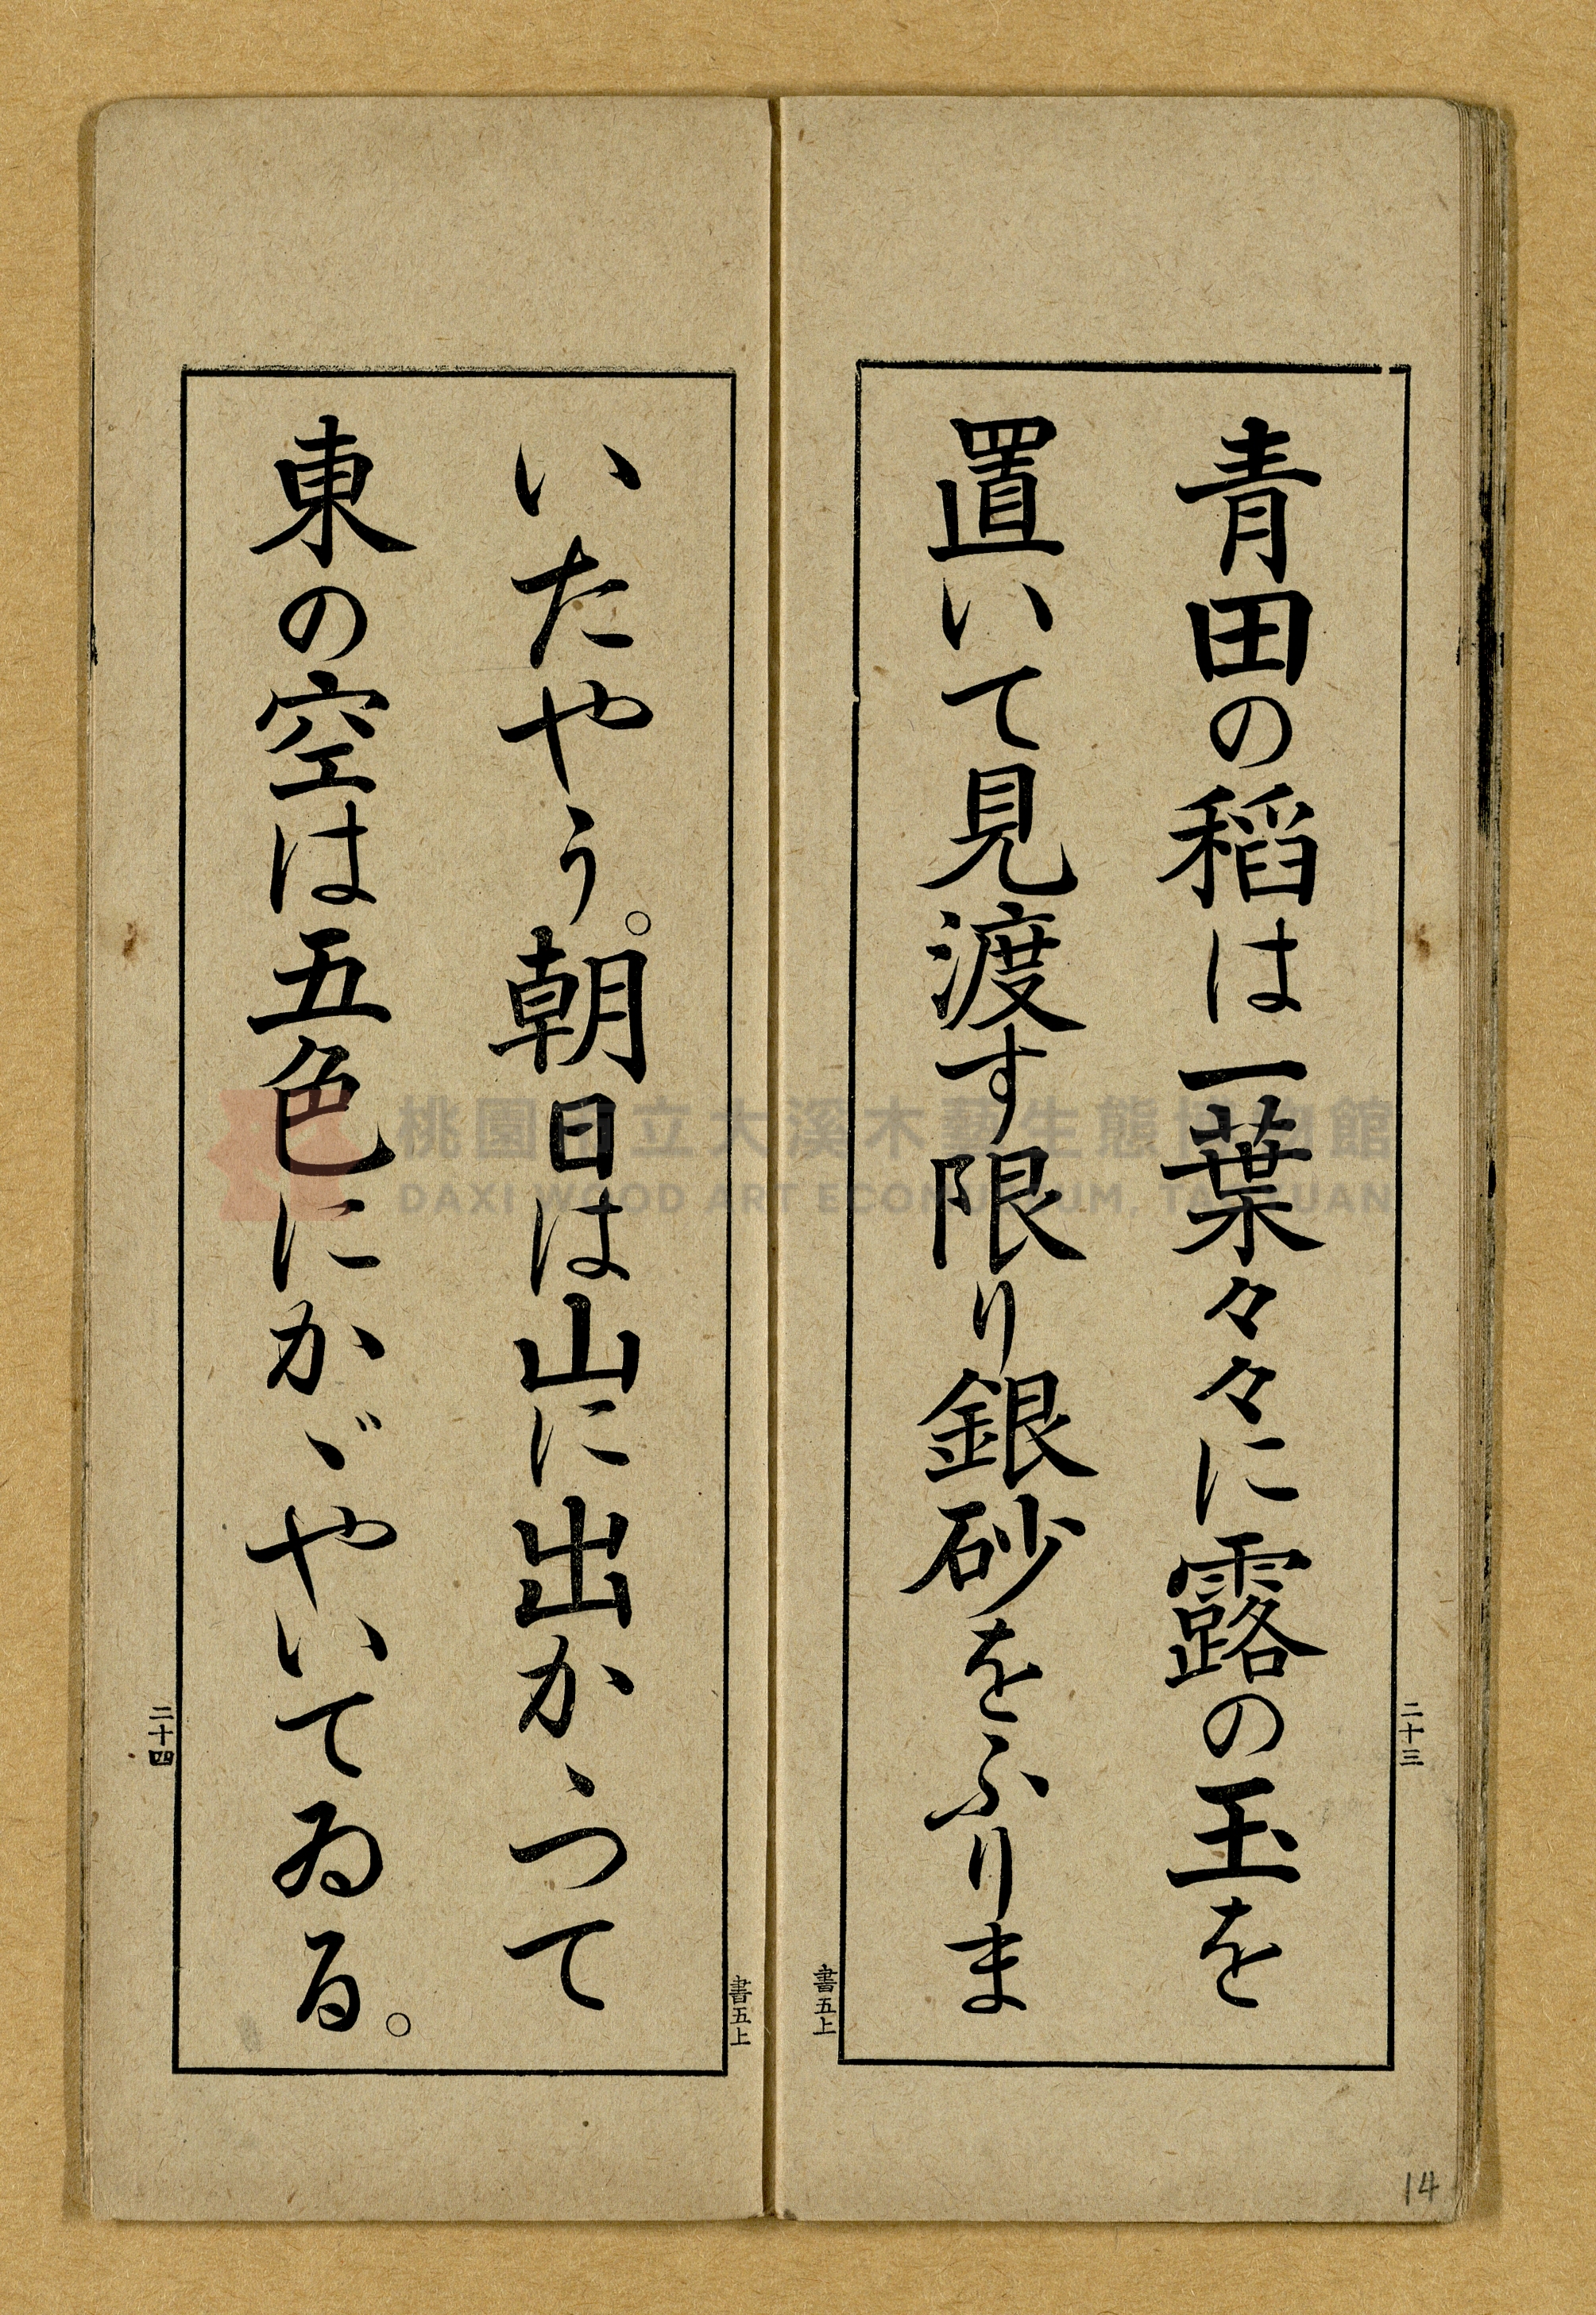 青田の稻は一葉々々に露の玉を
置いて見渡す限り銀砂をふりま
二十三
書五上
いたやう。朝日は山に出かゝつて
東の空は五色にかゞやいてゐる。
書五上
二十四
14
桃園市立大溪木藝生態博物館
DAXI WOOD ART ECOMUSEUM, TAOYUAN